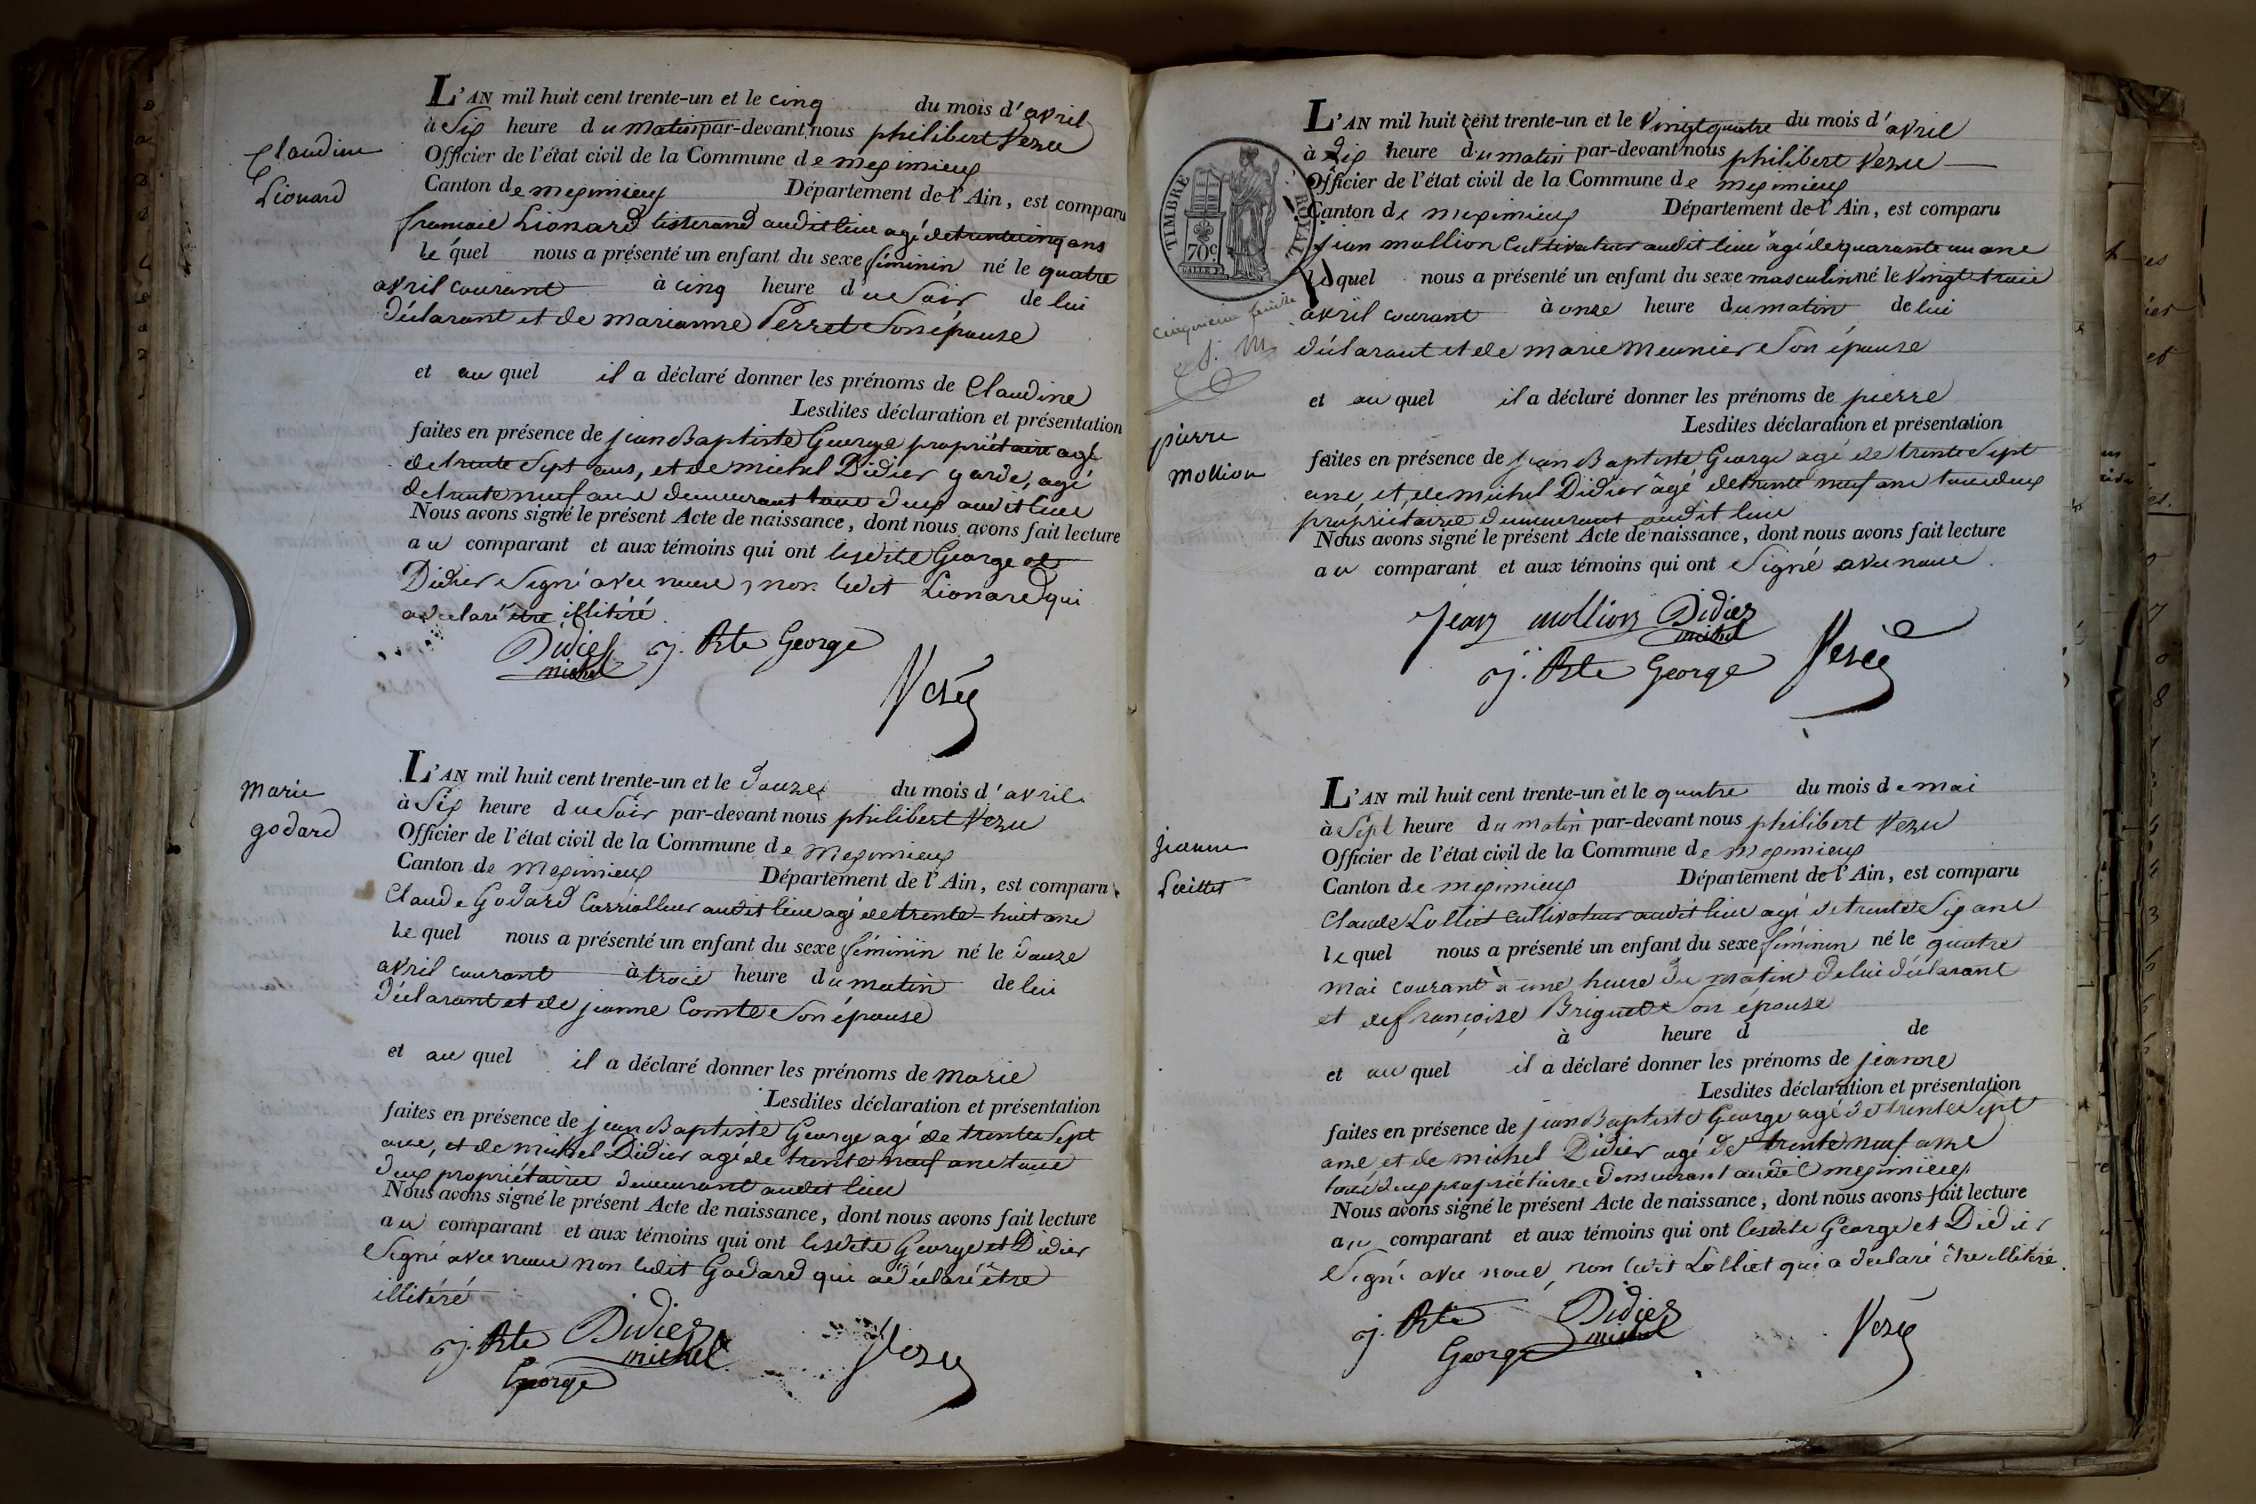 Claudine
Lionard
L'AN mil huit cent trente-un et le cinq du mois d'avril
à Six heure du matin par-devant nous philibert Vezu
Officier de l'état civil de la Commune de meximieux
Canton de meximieux Département de l'Ain, est comparu
francois Lionard tisserand audit lieu agé de trente cinq ans
le quel nous a présenté un enfant du sexe féminin né le quatre
avril courant à cinq heure du Soir de lui
déclarant et de marianne Perret Son épouse
et au quel il a déclaré donner les prénoms de Claudine
Lesdites déclaration et présentation
faites en présence de jean Baptiste George propriétaire agé
de trente Sept ans, et de michel Didier garde, agé
de trente neuf ans demeurant tous deux audit lieu
Nous avons signé le présent Acte de naissance, dont nous avons fait lecture
au comparant et aux témoins qui ont lesdits George et
Didier Signé avec nous, non ledit Lionard qui
a déclaré être illitéré
Didier michel j. Bte George
Vezu
marie
godard
L'AN mil huit cent trente-un et le douze du mois d'avril
à Six heure du Soir par-devant nous philibert Vezu
Officier de l'état civil de la Commune de Meximieux
Canton de Meximieux Département de l'Ain, est comparu
Claude Godard Carriolleur audit lieu agé de trente-huit ans
le quel nous a présenté un enfant du sexe féminin né le douze
avril courant à trois heure du matin de lui
déclarant et de jeanne Comte Son épouse
et au quel il a déclaré donner les prénoms de marie
Lesdites déclaration et présentation
faites en présence de jean Baptiste George agé de trente Sept
ans, et de michel Didier agé de trente neuf ans tous
deux propriétaires demeurant audit lieu
Nous avons signé le présent Acte de naissance, dont nous avons fait lecture
au comparant et aux témoins qui ont lesdits George et Didier
Signé avec nous non ledit Godard qui a déclaré être
illitéré
j. Bte Didier michel Vezu
George
TIMBRE ROYAL
70c
cinquieme feuille
pierre
mollion
L'AN mil huit cent trente-un et le vingt quatre du mois d'avril
à dix heure du matin par-devant nous philibert Vezu
Officier de l'état civil de la Commune de meximieux
Canton de meximieux Département de l'Ain, est comparu
jean mollion Cultivateur audit lieu agé de quarante un ans
le quel nous a présenté un enfant du sexe masculin né le vingt trois
avril courant à onze heure du matin de lui
déclarant et de marie Meunier Son épouse
et au quel il a déclaré donner les prénoms de pierre
Lesdites déclaration et présentation
faites en présence de jean Baptiste George agé de trente Sept
ans, et de michel Didier agé de trente neuf ans tous deux
propriétaires demeurant audit lieu
Nous avons signé le présent Acte de naissance, dont nous avons fait lecture
au comparant et aux témoins qui ont Signé avec nous.
jean mollion Didier michel
j. Bte George Vezu
jeanne
Lolliet
L'AN mil huit cent trente-un et le quatre du mois de mai
à Sept heure du matin par-devant nous philibert Vezu
Officier de l'état civil de la Commune de Meximieux
Canton de meximieux Département de l'Ain, est comparu
Claude Lolliet Cultivateur audit lieu agé de trente Six ans
le quel nous a présenté un enfant du sexe féminin né le quatre
mai courant à une heure du matin de lui déclarant
et de françoise Briguet Son épouse
à heure d de
et au quel il a déclaré donner les prénoms de jeanne
Lesdites déclaration et présentation
faites en présence de jean Baptiste George agé de trente Sept
ans et de michel Didier agé de trente neuf ans
tous deux propriétaires demeurant audit meximieux
Nous avons signé le présent Acte de naissance, dont nous avons fait lecture
au comparant et aux témoins qui ont lesdits George et Didier
Signé avec nous, non ledit Lolliet qui a déclaré être illitéré.
j. Bte Didier michel Vezu
George